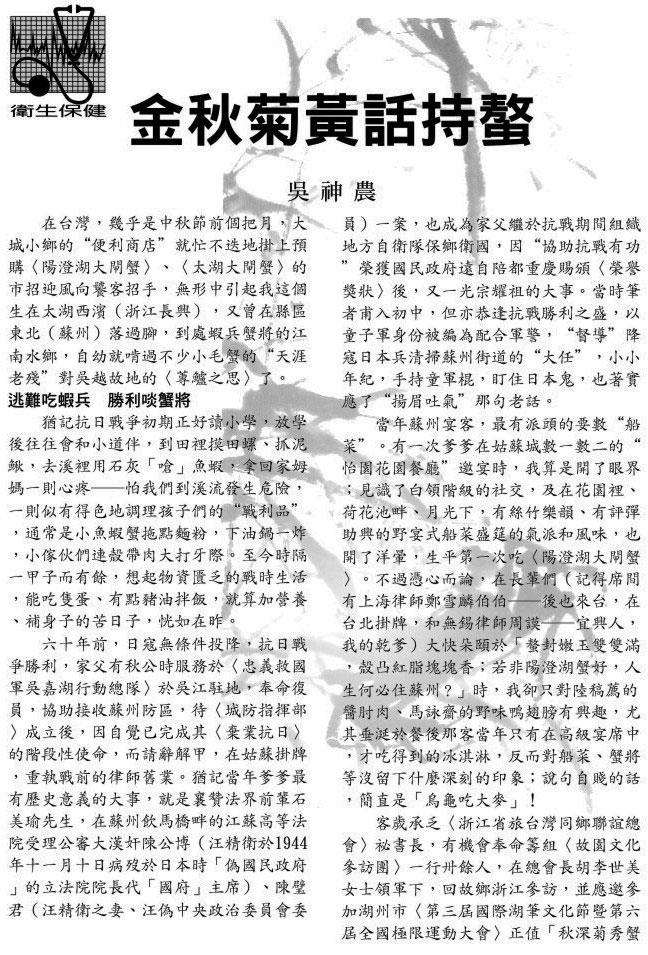 衛生保健
金秋菊黃話持螯
吳神農
在台灣，幾乎是中秋節前個把月，大
城小鄉的“便利商店”就忙不迭地掛上預
購〈陽澄湖大閘蟹〉、〈太湖大閘蟹〉的
市招迎風向饕客招手，無形中引起我這個
生在太湖西濱（浙江長興），又曾在縣區
東北（蘇州）落過腳，到處蝦兵蟹將的江
南水鄉，自幼就啃過不少小毛蟹的“天涯
老殘”對吳越故地的〈蓴鱸之思〉了。
逃難吃蝦兵　勝利啖蟹將
猶記抗日戰爭初期正好讀小學，放學
後往往會和小道伴，到田裡摸田螺、抓泥
鰍，去溪裡用石灰「嗆」魚蝦，拿回家姆
媽一則心疼——怕我們到溪流發生危險，
一則似有得色地調理孩子們的“戰利品”
，通常是小魚蝦蟹拖點麵粉，下油鍋一炸
，小傢伙們連殼帶肉大打牙際。至今時隔
一甲子而有餘，想起物資匱乏的戰時生活
，能吃隻蛋、有點豬油拌飯，就算加營養
、補身子的苦日子，恍如在昨。
六十年前，日寇無條件投降，抗日戰
爭勝利，家父有秋公時服務於〈忠義救國
軍吳嘉湖行動總隊〉於吳江駐地，奉命復
員，協助接收蘇州防區，待〈城防指揮部
〉成立後，因自覺已完成其〈棄業抗日〉
的階段性使命，而請辭解甲，在姑蘇掛牌
，重執戰前的律師舊業。猶記當年爹爹最
有歷史意義的大事，就是襄贊法界前輩石
美瑜先生，在蘇州飲馬橋畔的江蘇高等法
院受理公審大漢奸陳公博（汪精衛於1944
年十一月十日病歿於日本時「偽國民政府
」的立法院院長代「國府」主席）、陳璧
君（汪精衛之妻、汪偽中央政治委員會委
員）一案，也成為家父繼於抗戰期間組織
地方自衛隊保鄉衛國，因“協助抗戰有功
”榮獲國民政府遠自陪都重慶賜頒〈榮譽
獎狀〉後，又一光宗耀祖的大事。當時筆
者甫入初中，但亦恭逢抗戰勝利之盛，以
童子軍身份被編為配合軍警，“督導”降
寇日本兵清掃蘇州街道的“大任”，小小
年紀，手持童軍棍，盯住日本鬼，也著實
應了“揚眉吐氣”那句老話。
當年蘇州宴客，最有派頭的要數“船
菜”。有一次爹爹在姑蘇城數一數二的“
怡園花園餐廳”邀宴時，我算是開了眼界
；見識了白領階級的社交，及在花園裡、
荷花池畔、月光下，有絲竹樂韻、有評彈
助興的野宴式船菜盛筵的氣派和風味，也
開了洋暈，生平第一次吃〈陽澄湖大閘蟹
〉。不過憑心而論，在長輩們（記得席間
有上海律師鄭雪麟伯伯——後也來台，在
台北掛牌，和無錫律師周謨——宜興人，
我的乾爹）大快朵頤於「螯封嫩玉雙雙滿
，殼凸紅脂塊塊香；若非陽澄湖蟹好，人
生何必住蘇州？」時，我卻只對陸稿薦的
醬肘肉、馬詠齋的野味鴨翅膀有興趣，尤
其垂涎於餐後那客當年只有在高級宴席中
，才吃得到的冰淇淋，反而對船菜、蟹將
等沒留下什麼深刻的印象；說句自賤的話
，簡直是「烏龜吃大麥」！
客歲承乏〈浙江省旅台灣同鄉聯誼總
會〉祕書長，有機會奉命籌組〈故園文化
參訪團〉一行卅餘人，在總會長胡李世美
女士領軍下，回故鄉浙江參訪，並應邀參
加湖州市〈第三屆國際湖筆文化節暨第六
屆全國極限運動大會〉正值「秋深菊秀蟹